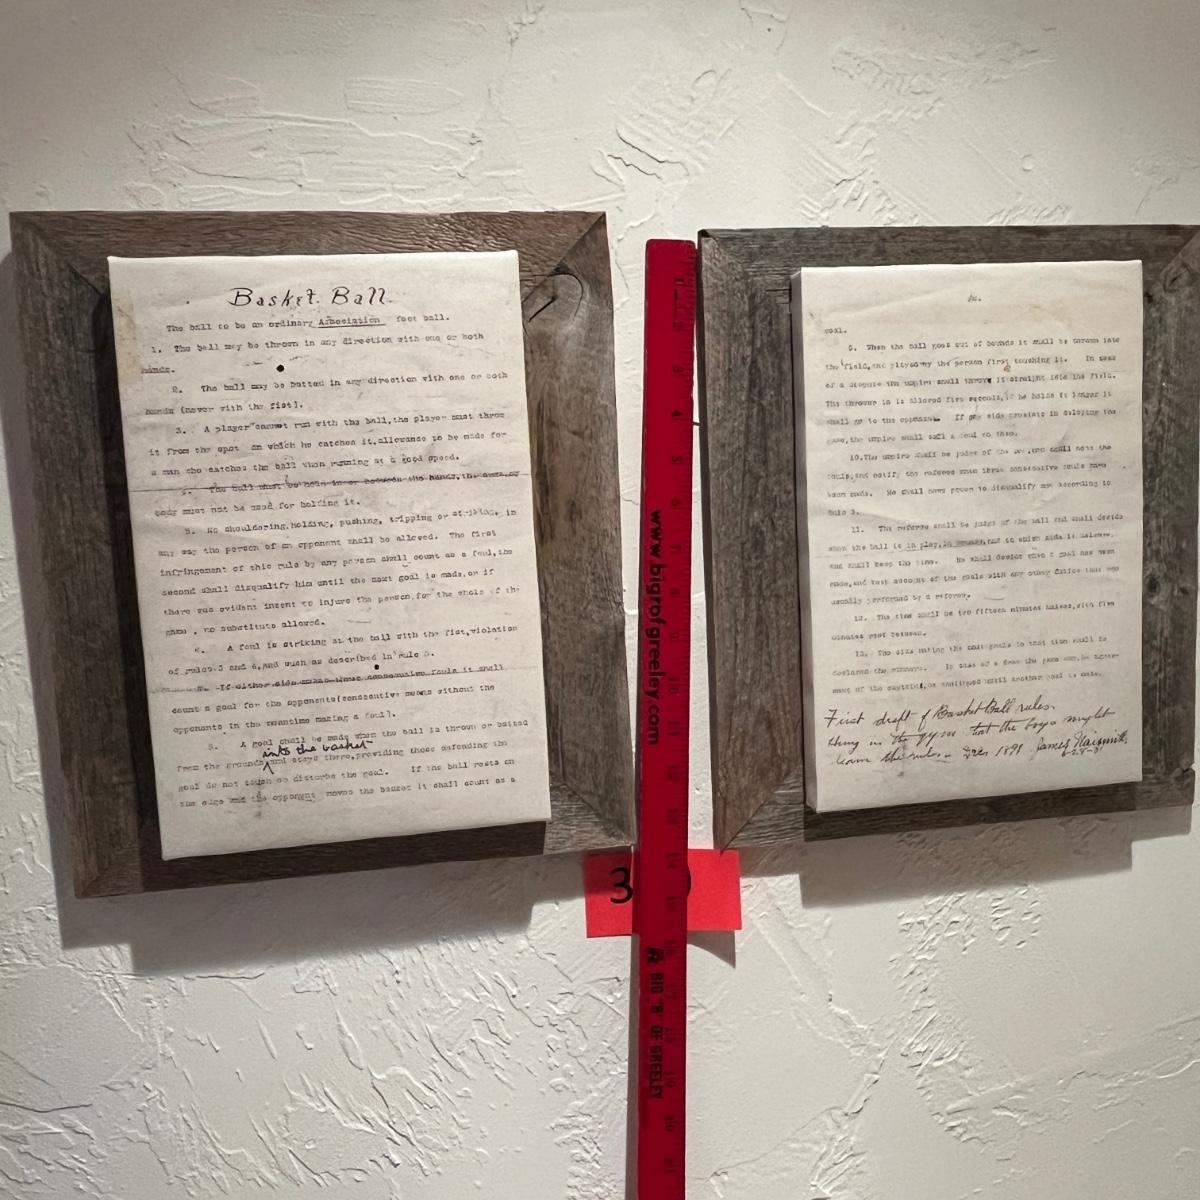 Basket Ball.
The ball to be an ordinary Association foot ball.
1. The ball may be thrown in any direction with one or both
hands.
2. The ball may be batted in any direction with one or both
hands (never with the fist).
3. A player cannot run with the ball, the player must throw
it from the spot on which he catches it, allowance to be made for
a man who catches the ball when running at a good speed.
The ball must be held in or between the hands, the arms or
body must not be used for holding it.
5. No shouldering, holding, pushing, tripping or striking, in
any way the person of an opponent shall be allowed. The first
infringement of this rule by any person shall count as a foul, the
second shall disqualify him until the next goal is made, or if
there was evident intent to injure the person, for the whole of the
game, no substitute allowed.
6. A foul is striking at the ball with the fist, violation
of rules 3 and 4, and such as described in rule 5.
If either side makes three consecutive fouls it shall
count a goal for the opponents (consecutive means without the
opponents in the meantime making a foul).
8. A goal shall be made when the ball is thrown or batted
into the basket
from the grounds and stays there, providing those defending the
goal do not touch or disturbe the goal. If the ball rests on
the edge and the opponent moves the basket it shall count as a
goal.
9. When the ball goes out of bounds it shall be thrown into
the field, and played by the person first touching it. In case
of a dispute the umpire shall throw it straight into the field.
The thrower in is allowed five seconds, if he holds it longer it
shall go to the opponent. If any side presists in delaying the
game, the umpire shall call a foul on them.
10. The umpire shall be judge of the men, and shall note the
fouls, and notify the referee when three consecutive fouls have
been made. He shall have power to disqualify men according to
Rule 5.
11. The referee shall be judge of the ball and shall decide
when the ball is in play, in bounds, and to which side it belongs,
and shall keep the time. He shall decide when a goal has been
made, and keep account of the goals with any other duties that are
usually preformed by a referee.
12. The time shall be two fifteen minutes halves, with five
minutes rest between.
13. The side making the most goals in that time shall be
declared the winners. In case of a draw the game may, by agree-
ment of the captains, be continued until another goal is made.
First draft of Basket Ball rules.
Hung in the gym that the boys might
learn the rules. Dec. 1891 James Naismith
6-28-31
www.bigrofgreeley.com
BIG "R" OF GREELEY
3